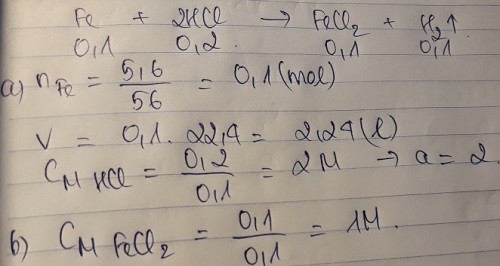 Fe + 2HCl → FeCl₂ + H₂↑.
0,1 0,2. 0,1 0,1
a) nFe = 5,6/56 = 0,1 (mol)
V = 0,1. 22,4 = 2,24 (l)
CM HCl = 0,2/0,1 = 2M → a = 2
b) CM FeCl₂ = 0,1/0,1 = 1M.